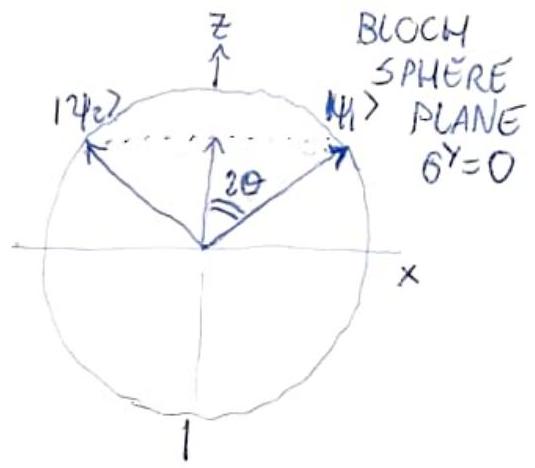 Z
BLOCH
SPHERE
PLANE
6^Y=0
|ψ2>
|ψ1>
2θ
x